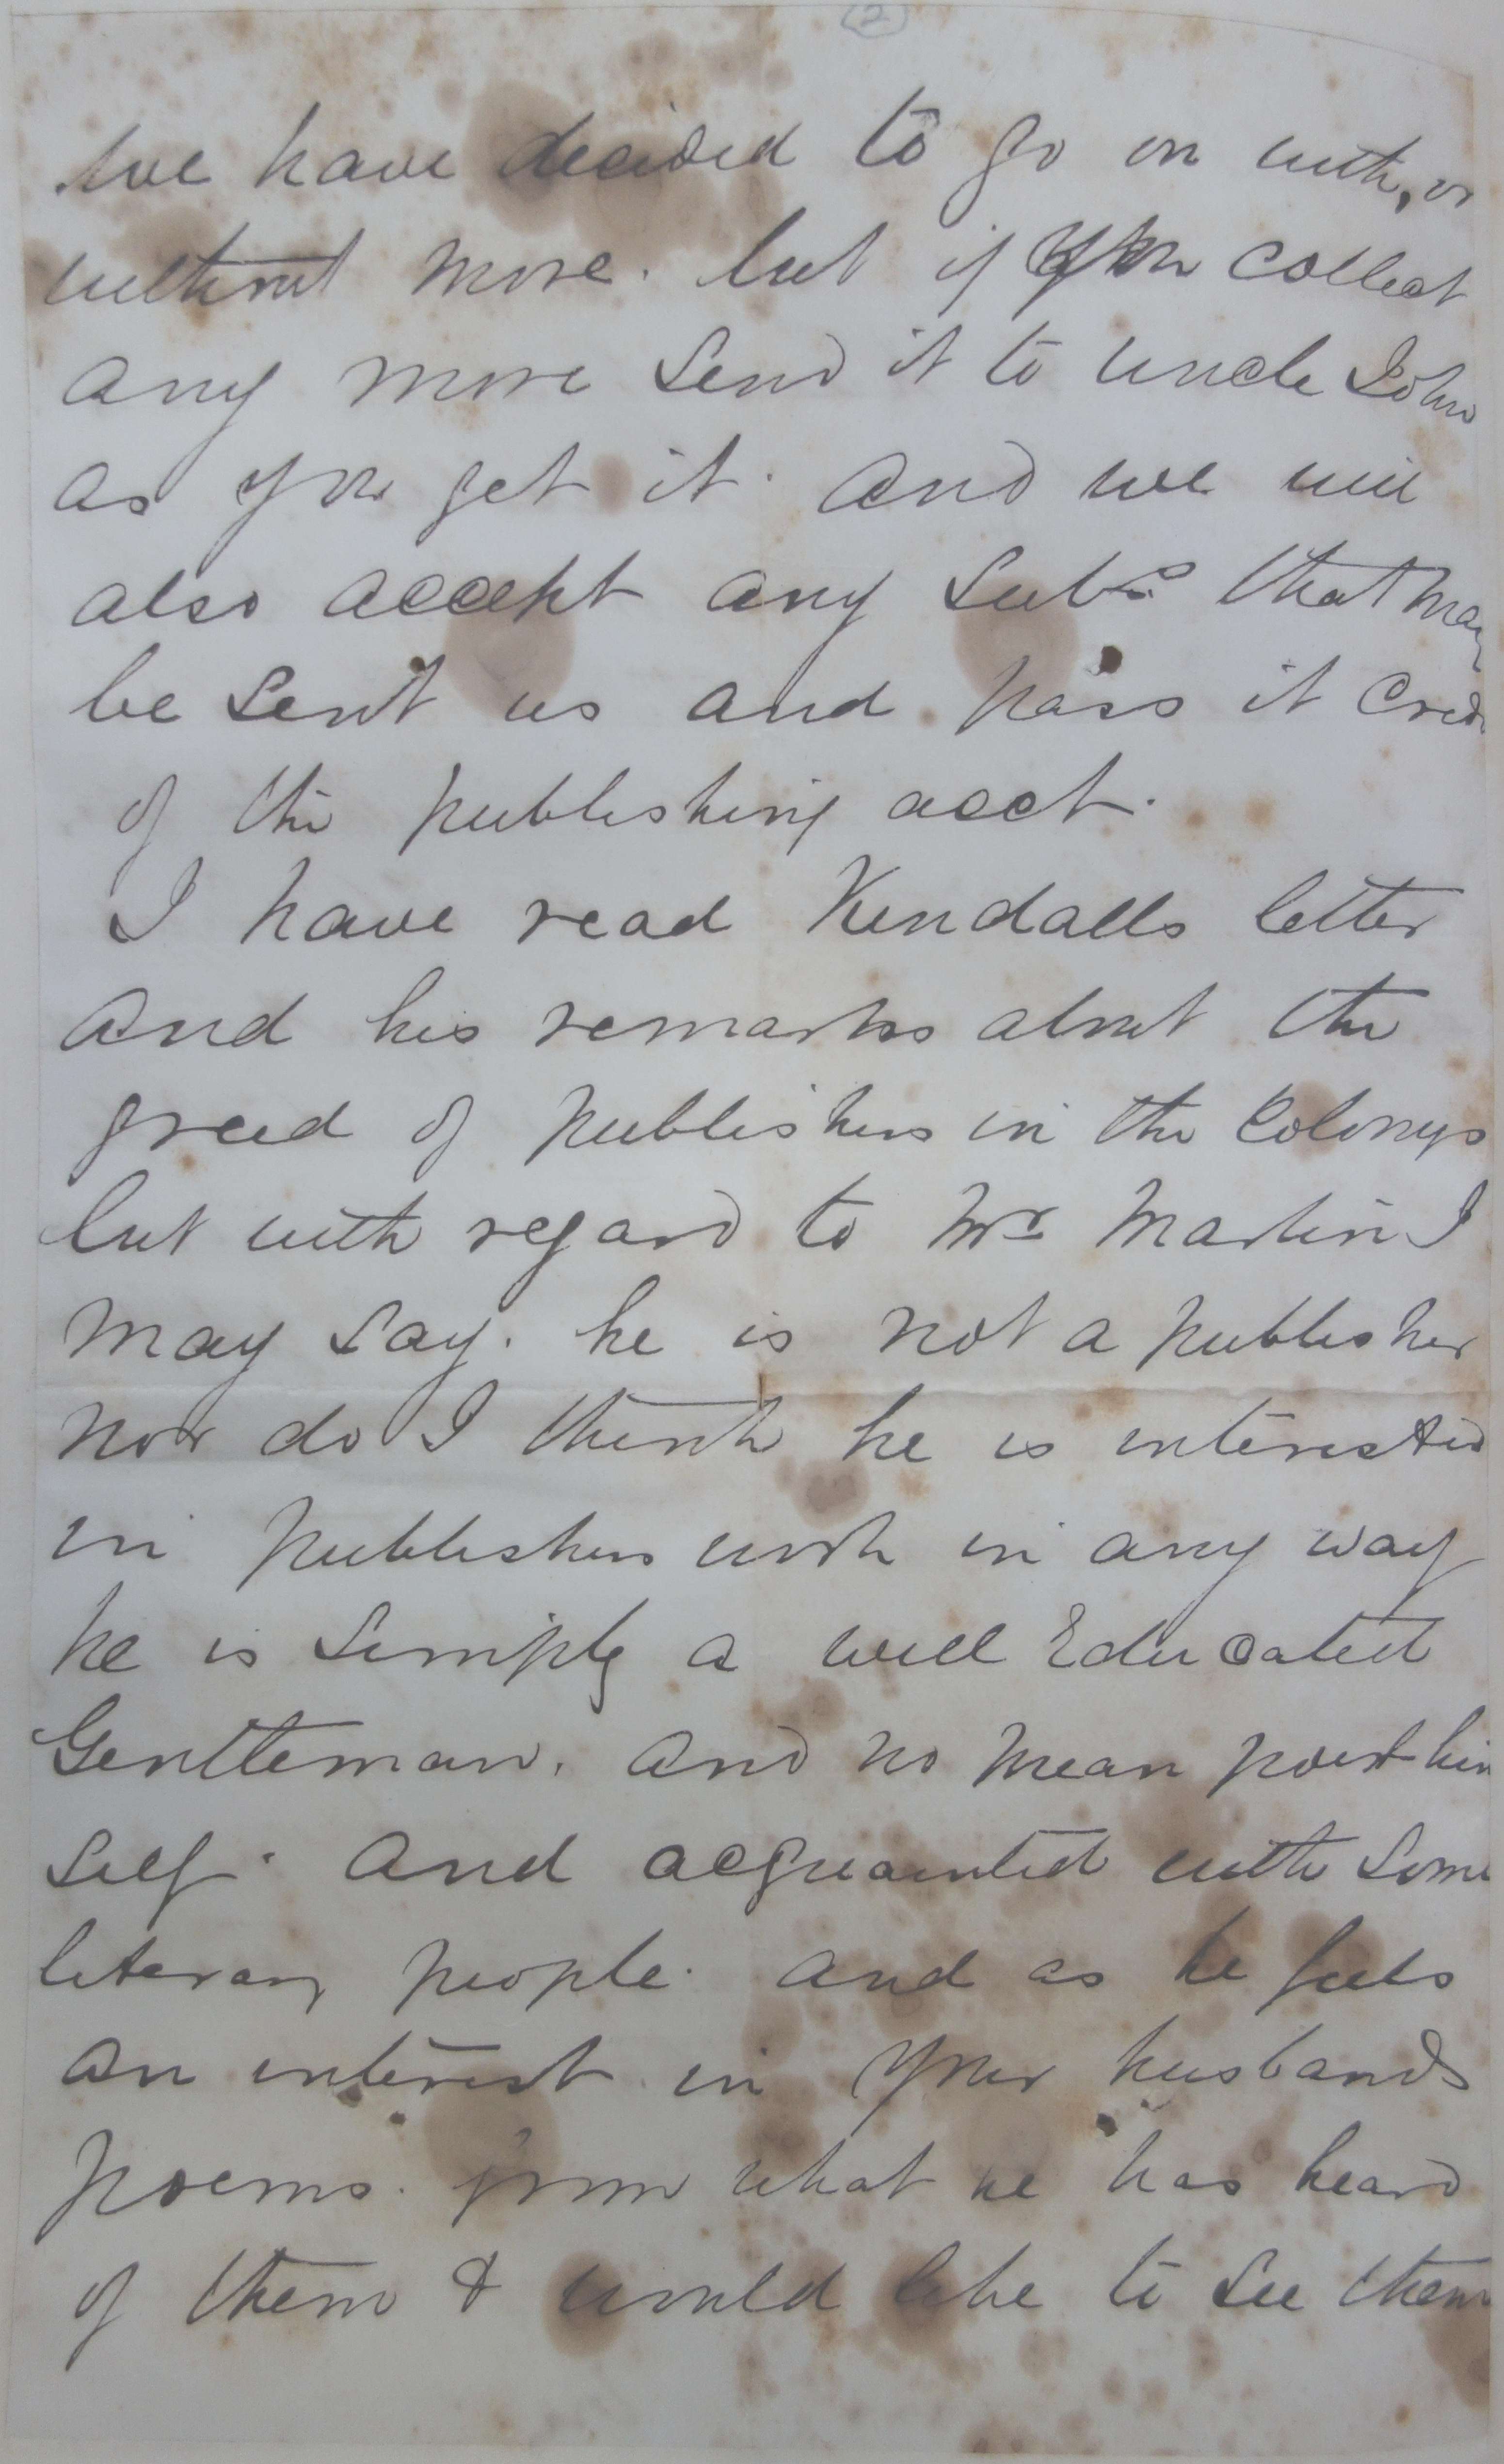 (2)
we have decided to go on with, or
without more. but if you collect
any more send it to uncle John
as you get it. and we will
also accept any Subs that may
be sent us and pass it Credt
of the publishing acct.
I have read Kendalls letter
and his remarks about the
greed of publishers in the Colonys
but with regard to Mr Martin I
may say. he is not a publisher
nor do I think he is interested
in publishers work in any way
he is simply a well Educated
Gentleman. and no mean poet him
self. and acquainted with some
literary people. and as he feels
an interest in your husbands
poems. from what he has heard
of them & would like to see them